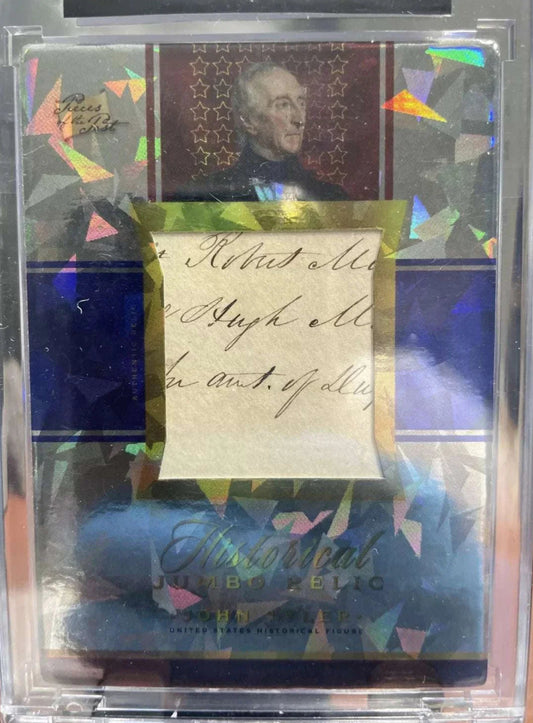 Pieces
of the Past
Robert M
Hugh M
amt. of
AUTHENTIC RELIC
Historical
JUMBO RELIC
JOHN TYLER
UNITED STATES HISTORICAL FIGURE